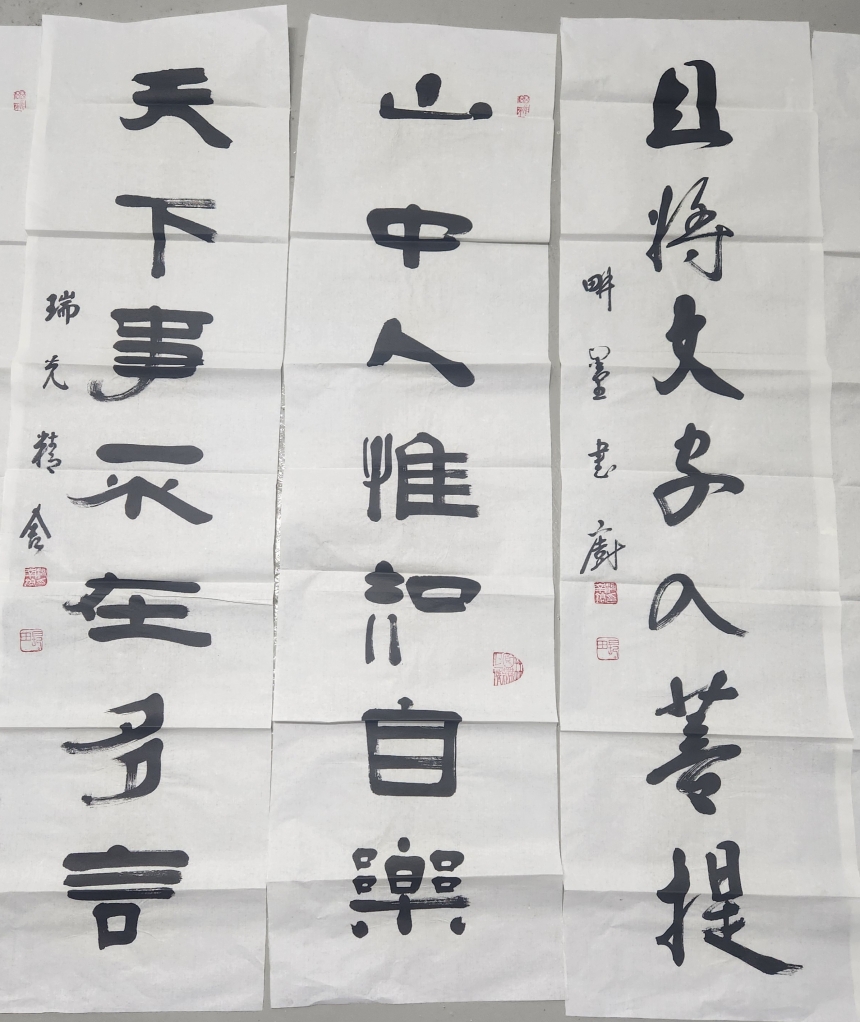 且將文字入菩提
畊墨書廚
山中人惟知自樂
天下事不在多言
瑞光精舍